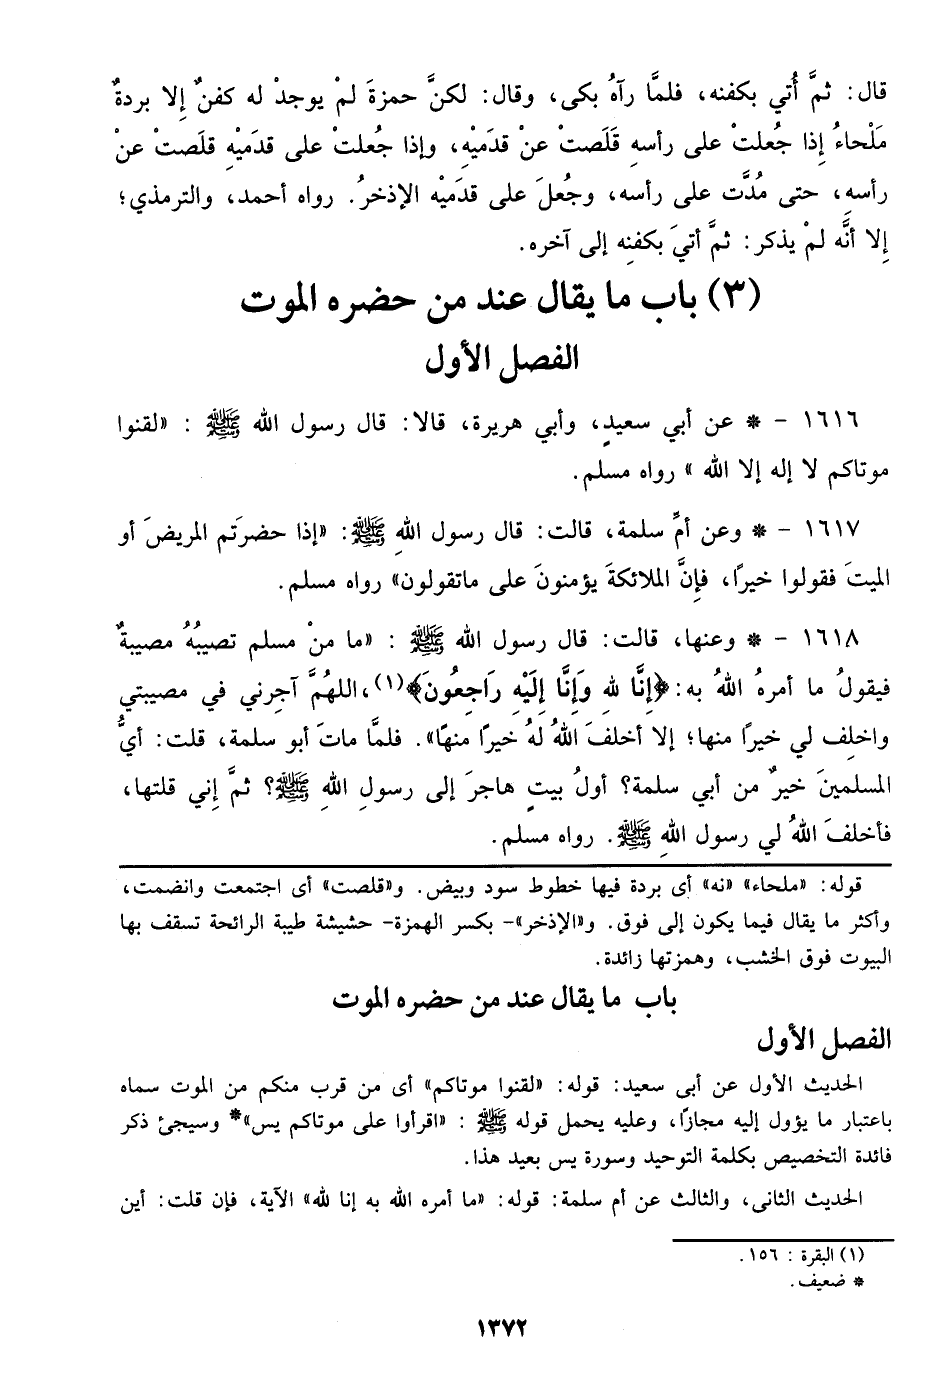 قال: ثمَّ أُتي بكفنه، فلمَّا رآهُ بكى، وقال: لكنَّ حمزةَ لمْ يوجدْ له كفنٌ إلا بردةٌ
مَلْحاءُ إذا جُعلتْ على رأسهِ قَلَصتْ عنْ قدَميْهِ، وإذا جُعلتْ على قدَميْهِ قلَصتْ عنْ
رأسه، حتى مُدَّت على رأسه، وجُعلَ على قدَميْه الإذخرُ. رواه أحمد، والترمذي؛
إلا أنَّه لمْ يذكر: ثمَّ أتيَ بكفنِه إلى آخره.
(٣) باب ما يقال عند من حضره الموت
الفصل الأول
١٦١٦ - * عن أبي سعيدٍ، وأبي هريرة، قالا: قال رسول الله ﷺ : «لقنوا
موتاكم لا إله إلا الله » رواه مسلم.
١٦١٧ - * وعن أمِّ سلمة، قالت: قال رسول اللهِ ﷺ: «إذا حضرَتم المريضَ أو
الميتَ فقولوا خيرًا، فإنَّ الملائكةَ يؤمنونَ على ماتقولون» رواه مسلم.
١٦١٨ - * وعنها، قالت: قال رسول الله ﷺ : «ما منْ مسلم تصيبُهُ مصيبةٌ
فيقولُ ما أمرهُ اللهُ به: ﴿إِنَّا لِلهِ وَإِنَّا إِلَيْهِ رَاجِعُونَ﴾(١)،اللهُمَّ آجِرني في مصيبتي
واخلِف لي خيرًا منها؛ إلا أخلفَ اللهُ لهُ خيرًا منهَا». فلمَّا ماتَ أبو سلمة، قلت: أيُّ
المسلمينَ خيرٌ من أبي سلمة؟ أولُ بيتٍ هاجرَ إلى رسولِ اللهِ ﷺ؟ ثمَّ إني قلتها،
فأخلفَ اللهُ لي رسول اللهِ ﷺ. رواه مسلم.
قوله: «ملحاء» «نه» أى بردة فيها خطوط سود وبيض. و«قلصت» أى اجتمعت وانضمت،
وأكثر ما يقال فيما يكون إلى فوق. و«الإذخر»- بكسر الهمزة- حشيشة طيبة الرائحة تسقف بها
البيوت فوق الخشب، وهمزتها زائدة.
باب ما يقال عند من حضره الموت
الفصل الأول
الحديث الأول عن أبى سعيد: قوله: «لقنوا موتاكم» أى من قرب منكم من الموت سماه
باعتبار ما يؤول إليه مجازًا، وعليه يحمل قوله ﷺ : «اقرأوا على موتاكم يس»* وسيجئ ذكر
فائدة التخصيص بكلمة التوحيد وسورة يس بعيد هذا.
الحديث الثانى، والثالث عن أم سلمة: قوله: «ما أمره الله به إنا لله» الآية، فإن قلت: أين
(١) البقرة : ١٥٦.
* ضعيف.
١٣٧٢